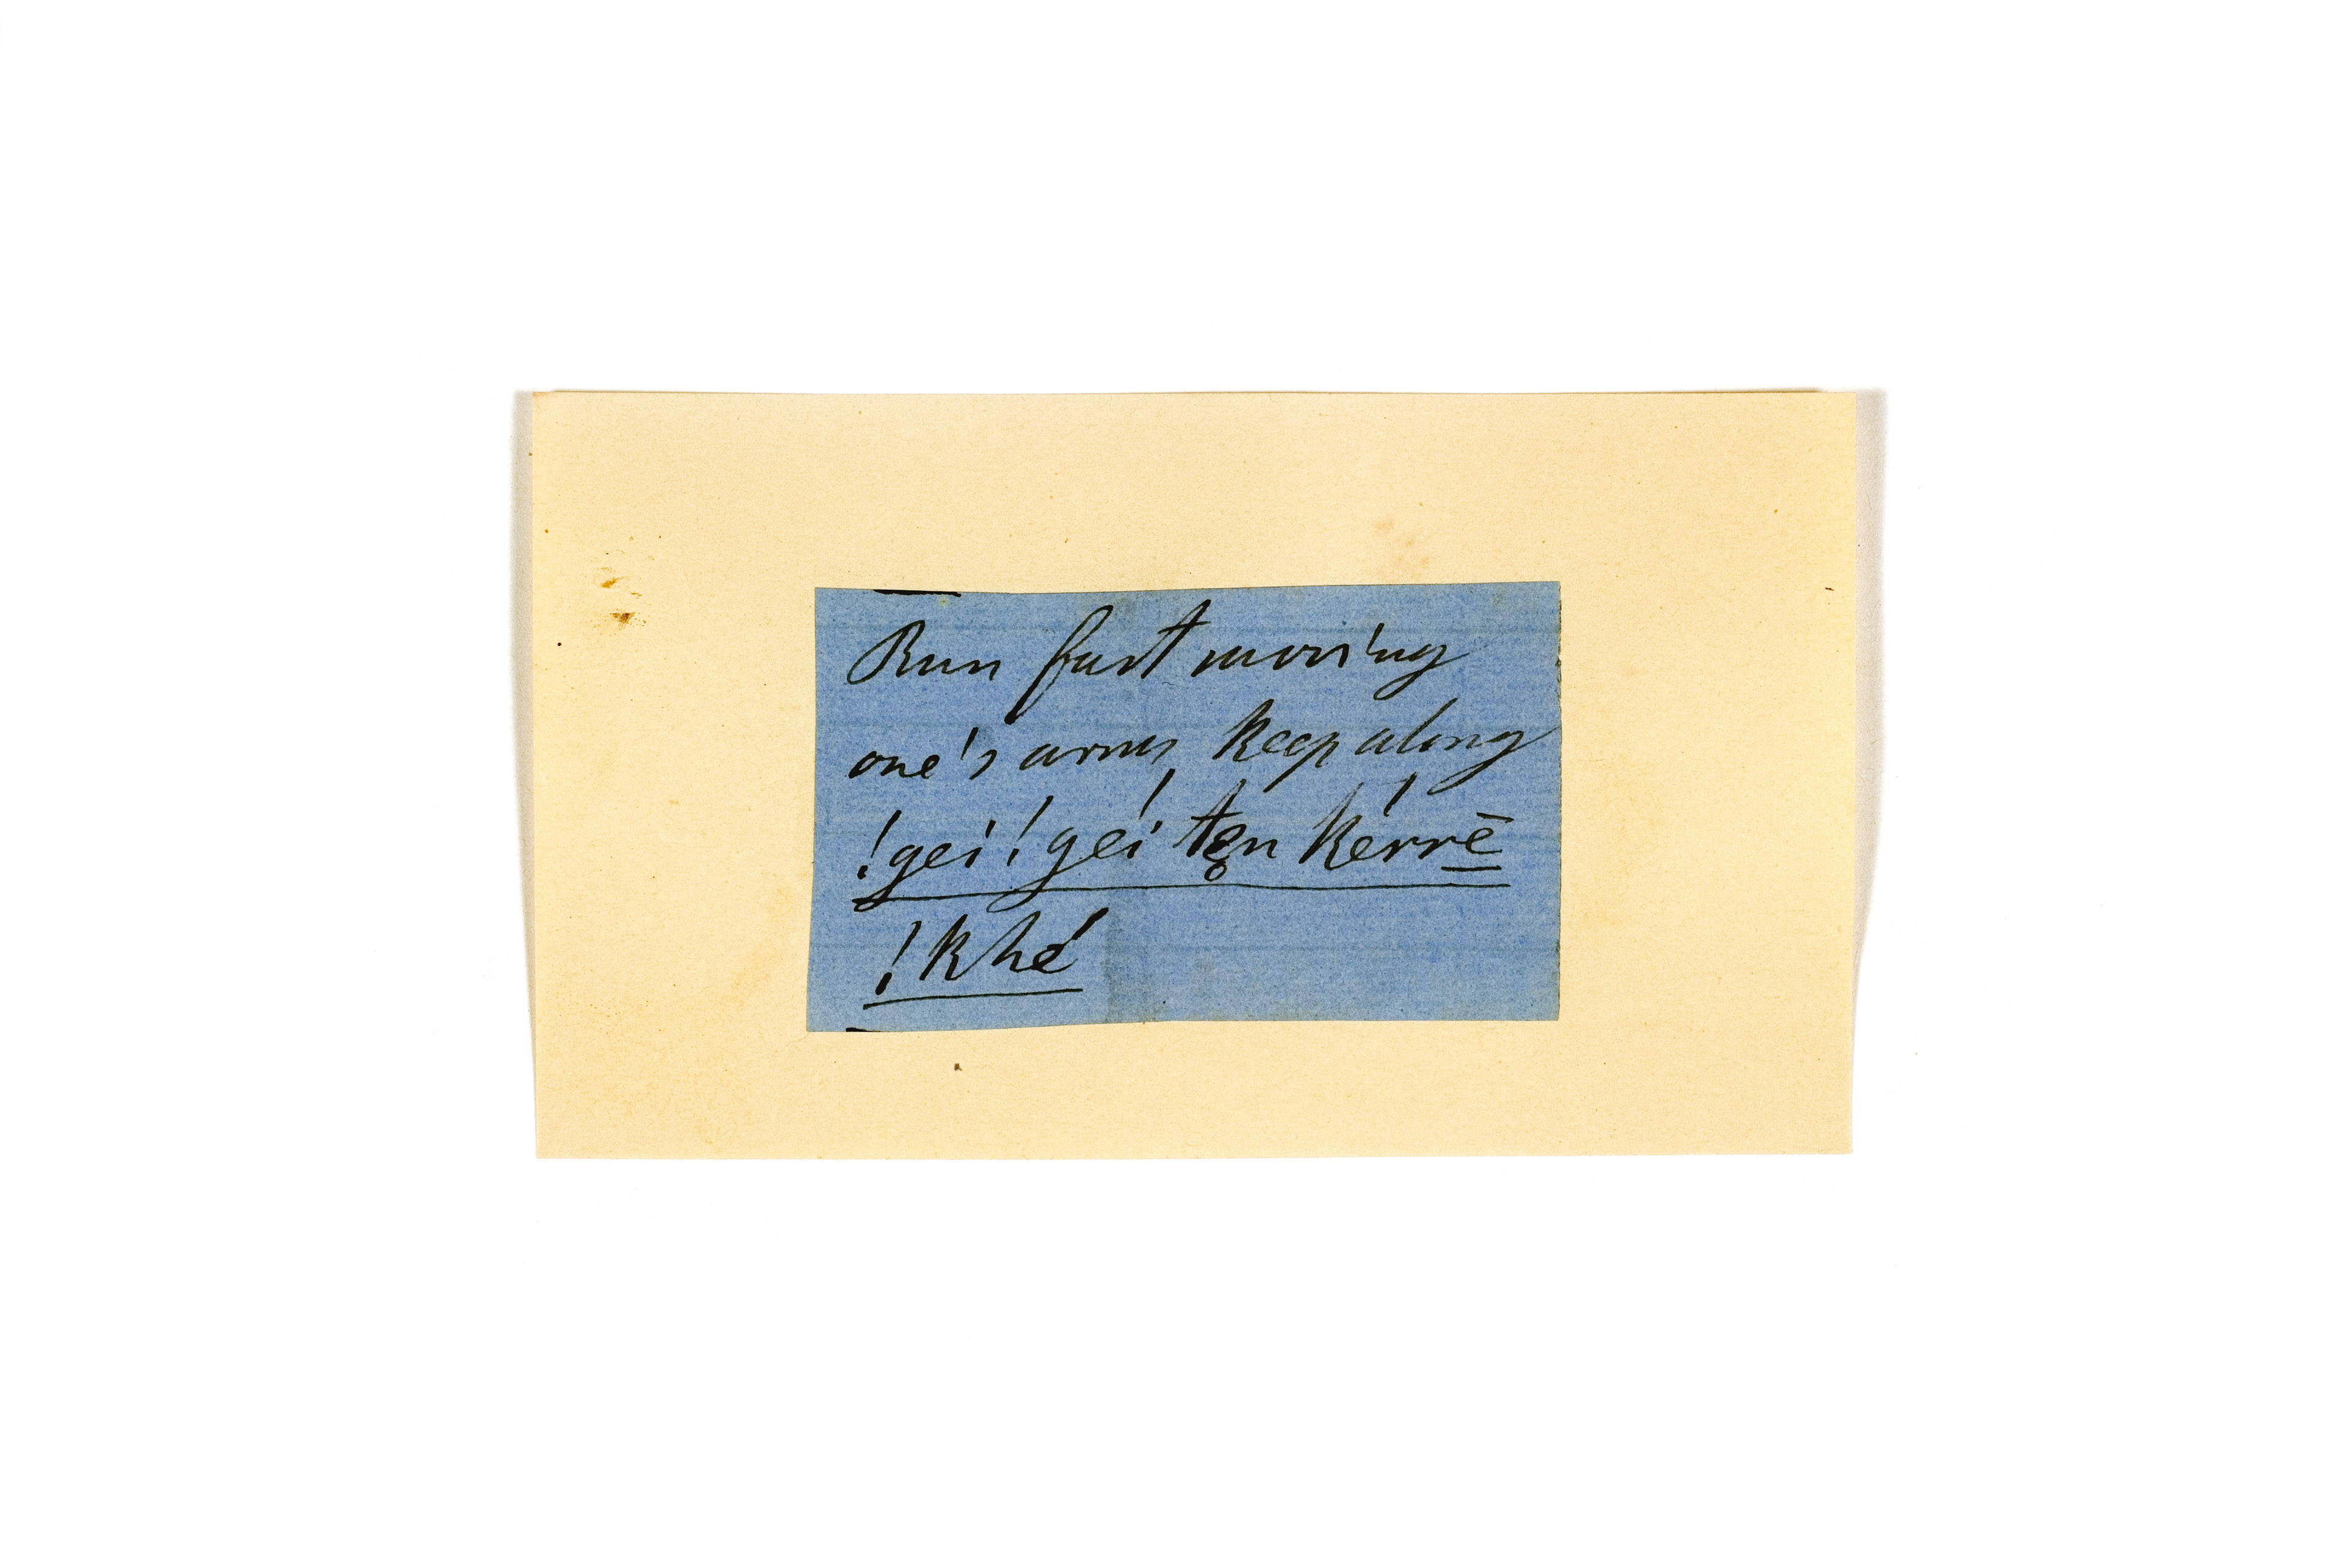 Run fast moving
one's arms, keep along
!gei !géi tẹn kérrē
!khé